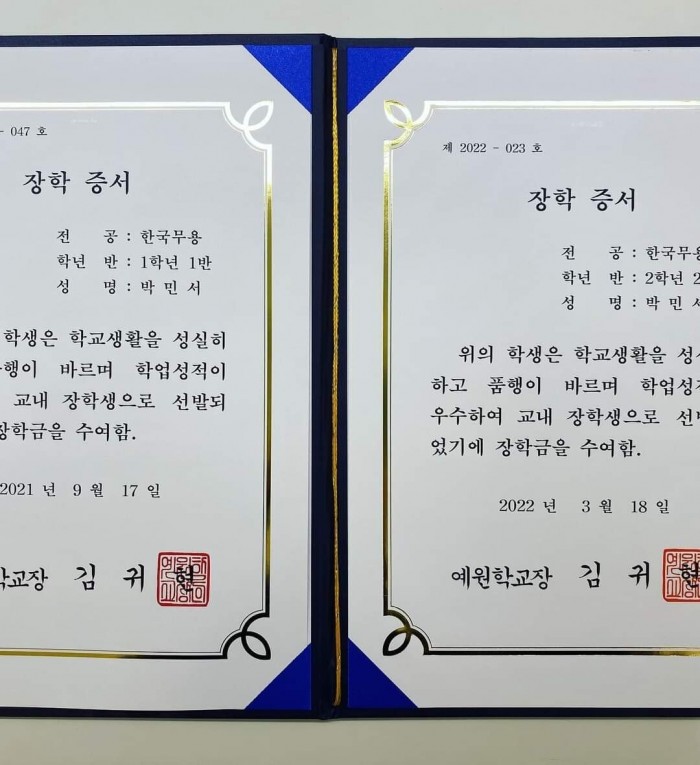 - 047 호
장학 증서
전 공 : 한국무용
학년 반 : 1학년 1반
성 명 : 박 민 서
학생은 학교생활을 성실히
바르며 학업성적이
교내 장학생으로 선발되
장학금을 수여함.
2021 년 9 월 17 일
김 귀 현
제 2022 - 023 호
장학 증서
전 공 : 한국무용
학년 반 : 2학년 2
성 명 : 박 민 서
위의 학생은 학교생활을
하고 품행이 바르며
우수하여 교내 장학생으로
었기에 장학금을 수여함.
2022 년 3 월 18 일
예원학교장 김 귀 현